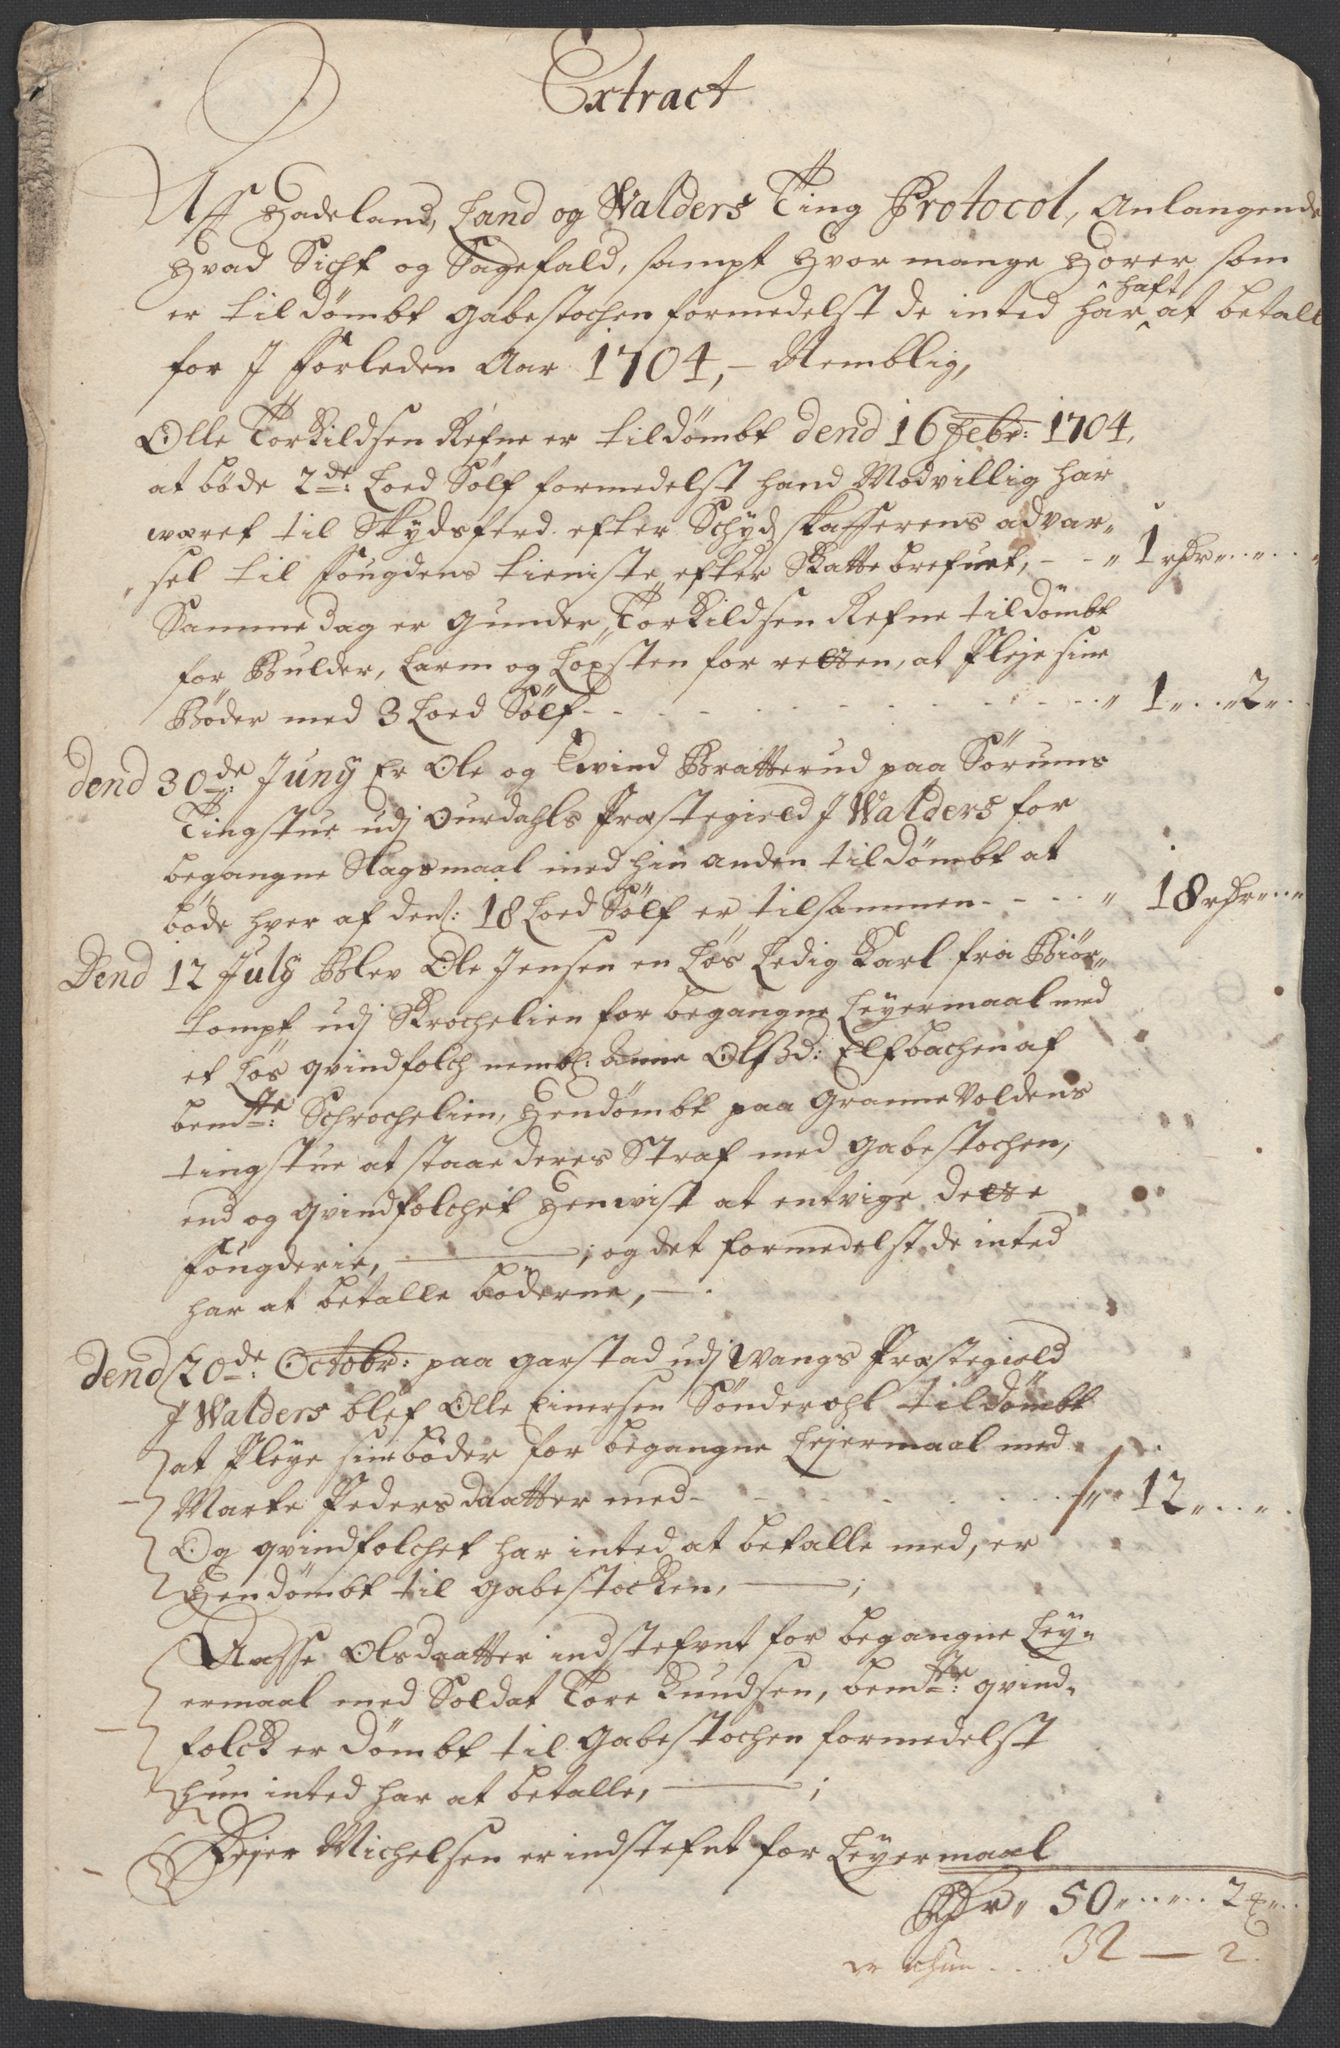 Extract
Aff Hadeland, Land og Walders Ting Protocol, Anlangende
Hvad Sicht og Sagefald, sampt Hvor mange Horer som
er tildømbt gabestochen formedelst de inted har ^haft at betale
for J forleden Aar 1704, – Nemblig,
Olle Torkildsen Refne er tildømbt dend 16 Febr: 1704,
at bøde 2de: Loed Sølf formedelst hand Modvillig har
wæret til Skydsferd efter Schyds skafferens advar-
sel til fougdens tieniste efter Skattebrefuet, - - " 1 rdr " . . " . .
Samme dag er Gunder Torkildsen Refne tildømbt
for Bulder, Larm og Løgsten for retten, at Pleje sine
Bøder med 3 Loed Sølf - - - - - - " 1 " . . " 2 " . .
Dend 30de: Junij Er Ole og Evind Bratterud paa Sørums
Tingstue udj Ourdahls Præstegield J Walders for
begangne Slagsmaal med hin anden tildømbt at
bøde hver af dem: 18 Loed Sølf er tilsammen - - - - " 18 rdr " . . "
Dend 12 July Blev Ole Jensen en Løs Ledig Karl fra Biør-
tompt udj Skrochelien for begangne Leyermaal med
et Løs qvindfolch nembl: Anne Olsd: Elfbachen af
bemte: Schrochelien, Hendømbt paa Granne Voldens
tingstue at staae deres Straf med gabestochen,
end og qvindfolchet Henvist at entvige dette
fougderie, ——— ; og det formedelst de inted
har at betalle bøderne, – .
Dend 20de: Octobr: paa Garstad udj Wangs Præstegield
J Walders blef Olle Einersen Sønderohl tildømbt
at Pleye sine bøder for begangne Lejermaal med
Marte Pedersdaatter med - - - - - - " 12 " . . " .
Og qvindfolchet har inted at betalle med, er
Hendømbt til gabestocken, ——— ;
Aasse Olsdaatter indstefnt for begangne Ley-
ermaal med Soldat Tore Knudsen, bemte: qvind-
folck er Dømbt til Gabestochen formedelst
hun inted har at betalle, ——— ;
Pejer Michelsen er indstefnt for Leyermaal
Rdr " 50 " . . " . . 2 " . .
32 — 2.